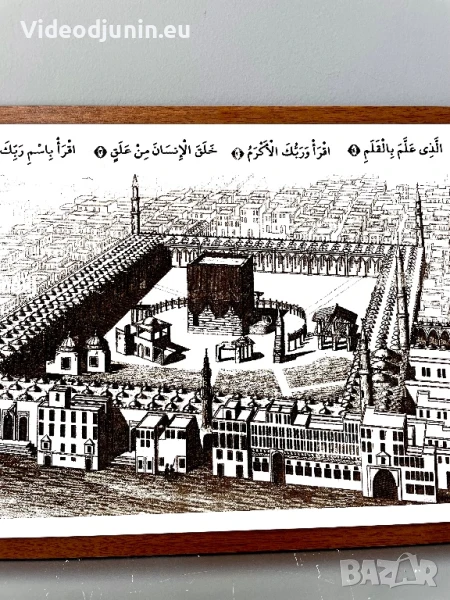 Videodjunin.eu
اقْرَأْ بِاسْمِ رَبِّكَ خَلَقَ الْإِنْسَانَ مِنْ عَلَقٍ ۝ اقْرَأْ وَرَبُّكَ الْأَكْرَمُ ۝ الَّذِى عَلَّمَ بِالْقَلَمِ ۝
BAZAR